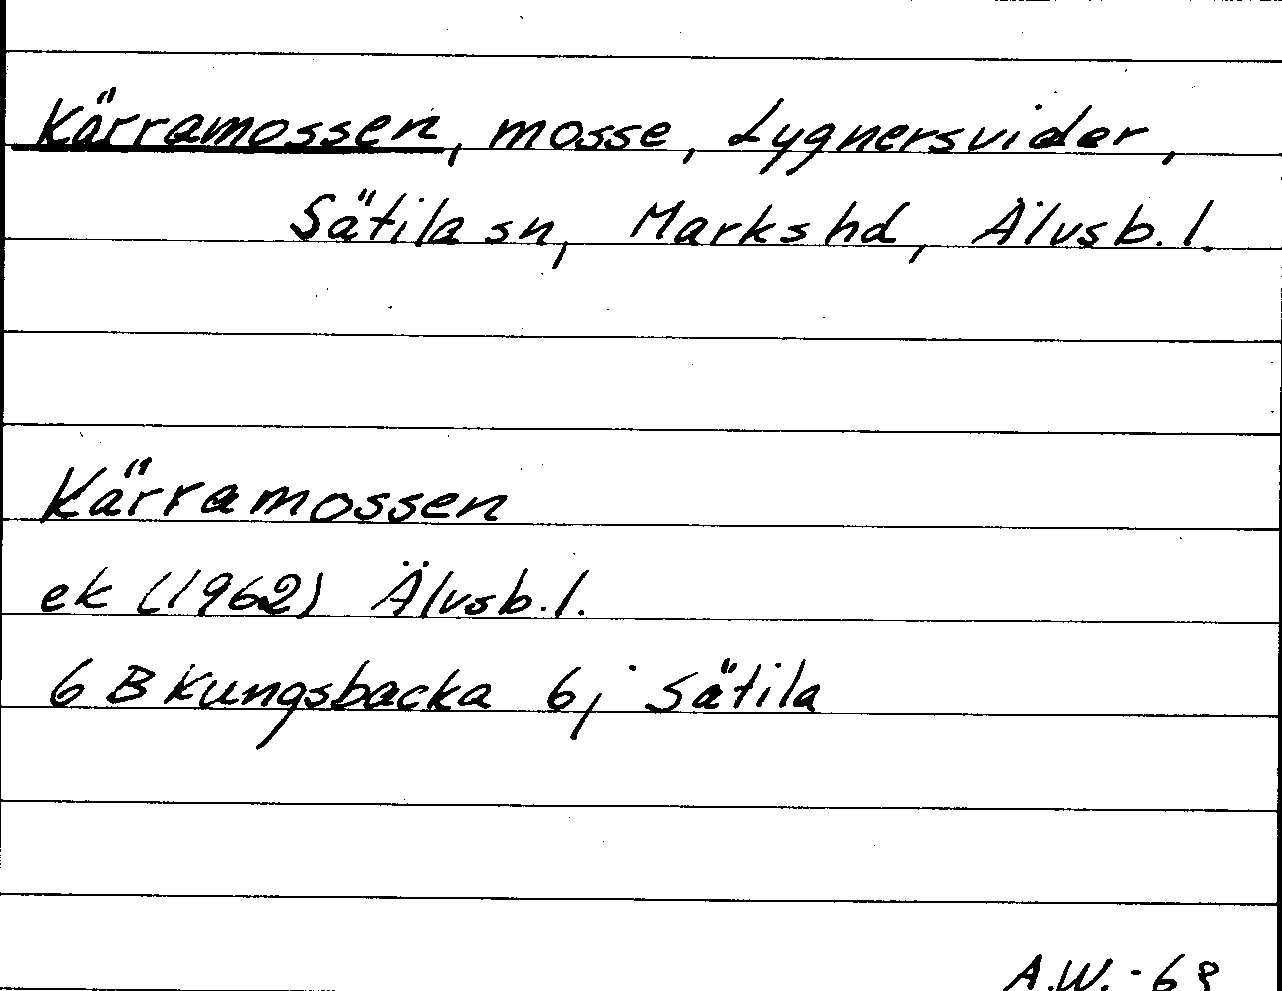 Kärramossen, mosse, Lygnersvider,
Sätila sn, Marks hd, Älvsb. l.
Kärramossen
ek (1962) Älvsb. l.
6 B Kungsbacka 6j Sätila
A.W. - 68